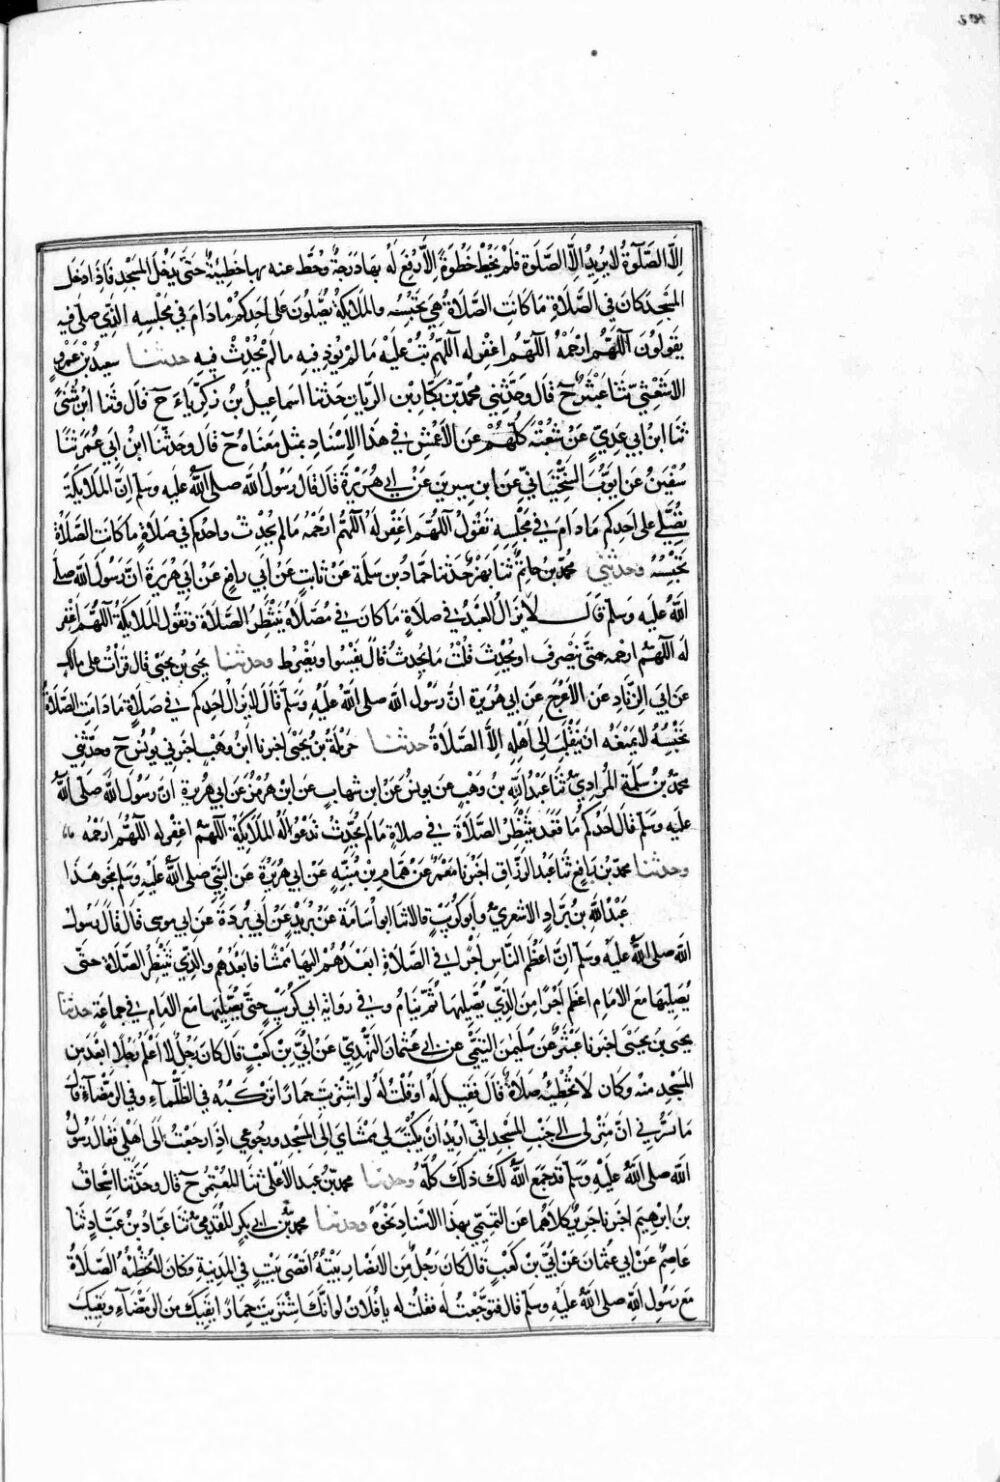 الا الصلوة لا يريد الا الصلوة فلم يخط خطوة الا رفع له بها درجة وحط عنه بها خطيئة حتى يدخل المسجد فاذا دخل
المسجد كان في الصلاة ما كانت الصلاة هي تحبسه والملايكة يصلون على احدكم ما دام في مجلسه الذي صلى فيه
يقولون اللهم ارحمه اللهم اغفر له اللهم تب عليه ما لم يوذ فيه ما لم يحدث فيه حدثنا سعيد بن عمرو
الاشعثي ثنا عبثر ح قال وحدثني محمد بن بكار بن الريان حدثنا اسماعيل بن زكرياء ح قال وثنا ابن مثنى
ثنا ابن ابي عدي عن شعبة كلهم عن الاعمش في هذا الاسناد بمثل معناه ح قال وحدثنا ابن ابي عمر ثنا
سفين عن ايوب السختياني عن ابن سيرين عن ابي هريرة قال قال رسول الله صلى الله عليه وسلم ان الملايكة
تصلي على احدكم ما دام في مجلسه تقول اللهم اغفر له اللهم ارحمه ما لم يحدث واحدكم في صلاة ما كانت الصلاة
تحبسه وحدثني محمد بن حاتم ثنا بهز حدثنا حماد بن سلمة عن ثابت عن ابي رافع عن ابي هريرة ان رسول الله صلى
الله عليه وسلم قال لا يزال العبد في صلاة ما كان في مصلاه ينتظر الصلاة وتقول الملايكة اللهم اغفر
له اللهم ارحمه حتى ينصرف او يحدث قلت ما يحدث قال يفسوا ويضرط وحدثنا يحيى بن يحيى قال قرأت على مالك
عن ابي الزناد عن الاعرج عن ابي هريرة ان رسول الله صلى الله عليه وسلم قال لا يزال احدكم في صلاة ما دامت الصلاة
تحبسه لا يمنعه ان ينقلب الى اهله الا الصلاة حدثنا حرملة بن يحيى اخبرنا ابن وهب اخبرني يونس ح وحدثني
محمد بن سلمة المرادي ثنا عبد الله بن وهب عن يونس عن ابن شهاب عن ابن هرمز عن ابي هريرة ان رسول الله صلى الله
عليه وسلم قال احدكم ما قعد ينتظر الصلاة في صلاة ما لم يحدث تدعوا له الملايكة اللهم اغفر له اللهم ارحمه
وحدثنا محمد بن رافع ثنا عبد الرزاق اخبرنا معمر عن همام بن منبه عن ابي هريرة عن النبي صلى الله عليه وسلم بنحو هذا
عبد الله بن براد الاشعري وابو كريب قالا ثنا ابو اسامة عن بريد عن ابي بردة عن ابي موسى قال قال رسول
الله صلى الله عليه وسلم ان اعظم الناس اجرا في الصلاة ابعدهم اليها ممشا فابعدهم والذي ينتظر الصلاة حتى
يصليها مع الامام اعظم اجرا من الذي يصليها ثم ينام وفي رواية ابي كريب حتى يصليها مع الامام في جماعة حدثنا
يحيى بن يحيى اخبرنا عبثر عن سليمن التيمي عن ابي عثمان النهدي عن ابي بن كعب قال كان رجل لا اعلم رجلا ابعد من
المسجد منه وكان لا تخطئه صلاة قال فقيل له او قلت له لو اشتريت حمارا تركبه في الظلماء وفي الرمضاء قال
ما يسرني ان منزلي الى جنب المسجد اني اريد ان يكتب لي ممشاي الى المسجد ورجوعي اذا رجعت الى اهلي فقال رسول
الله صلى الله عليه وسلم قد جمع الله لك ذلك كله وحدثنا محمد بن عبد الاعلى ثنا المعتمر ح قال وحدثنا اسحاق
بن ابرهيم اخبرنا جرير كلاهما عن التيمي بهذا الاسناد نحوه وحدثنا محمد بن ابي بكر المقدمي ثنا عباد بن عباد ثنا
عاصم عن ابي عثمان عن ابي بن كعب قال كان رجل من الانصار بيته اقصى بيت في المدينة وكان لا تخطئه الصلاة
مع رسول الله صلى الله عليه وسلم قال فتوجعت له فقلت له يا فلان لو انك اشتريت حمارا يقيك من الرمضاء ويقيك